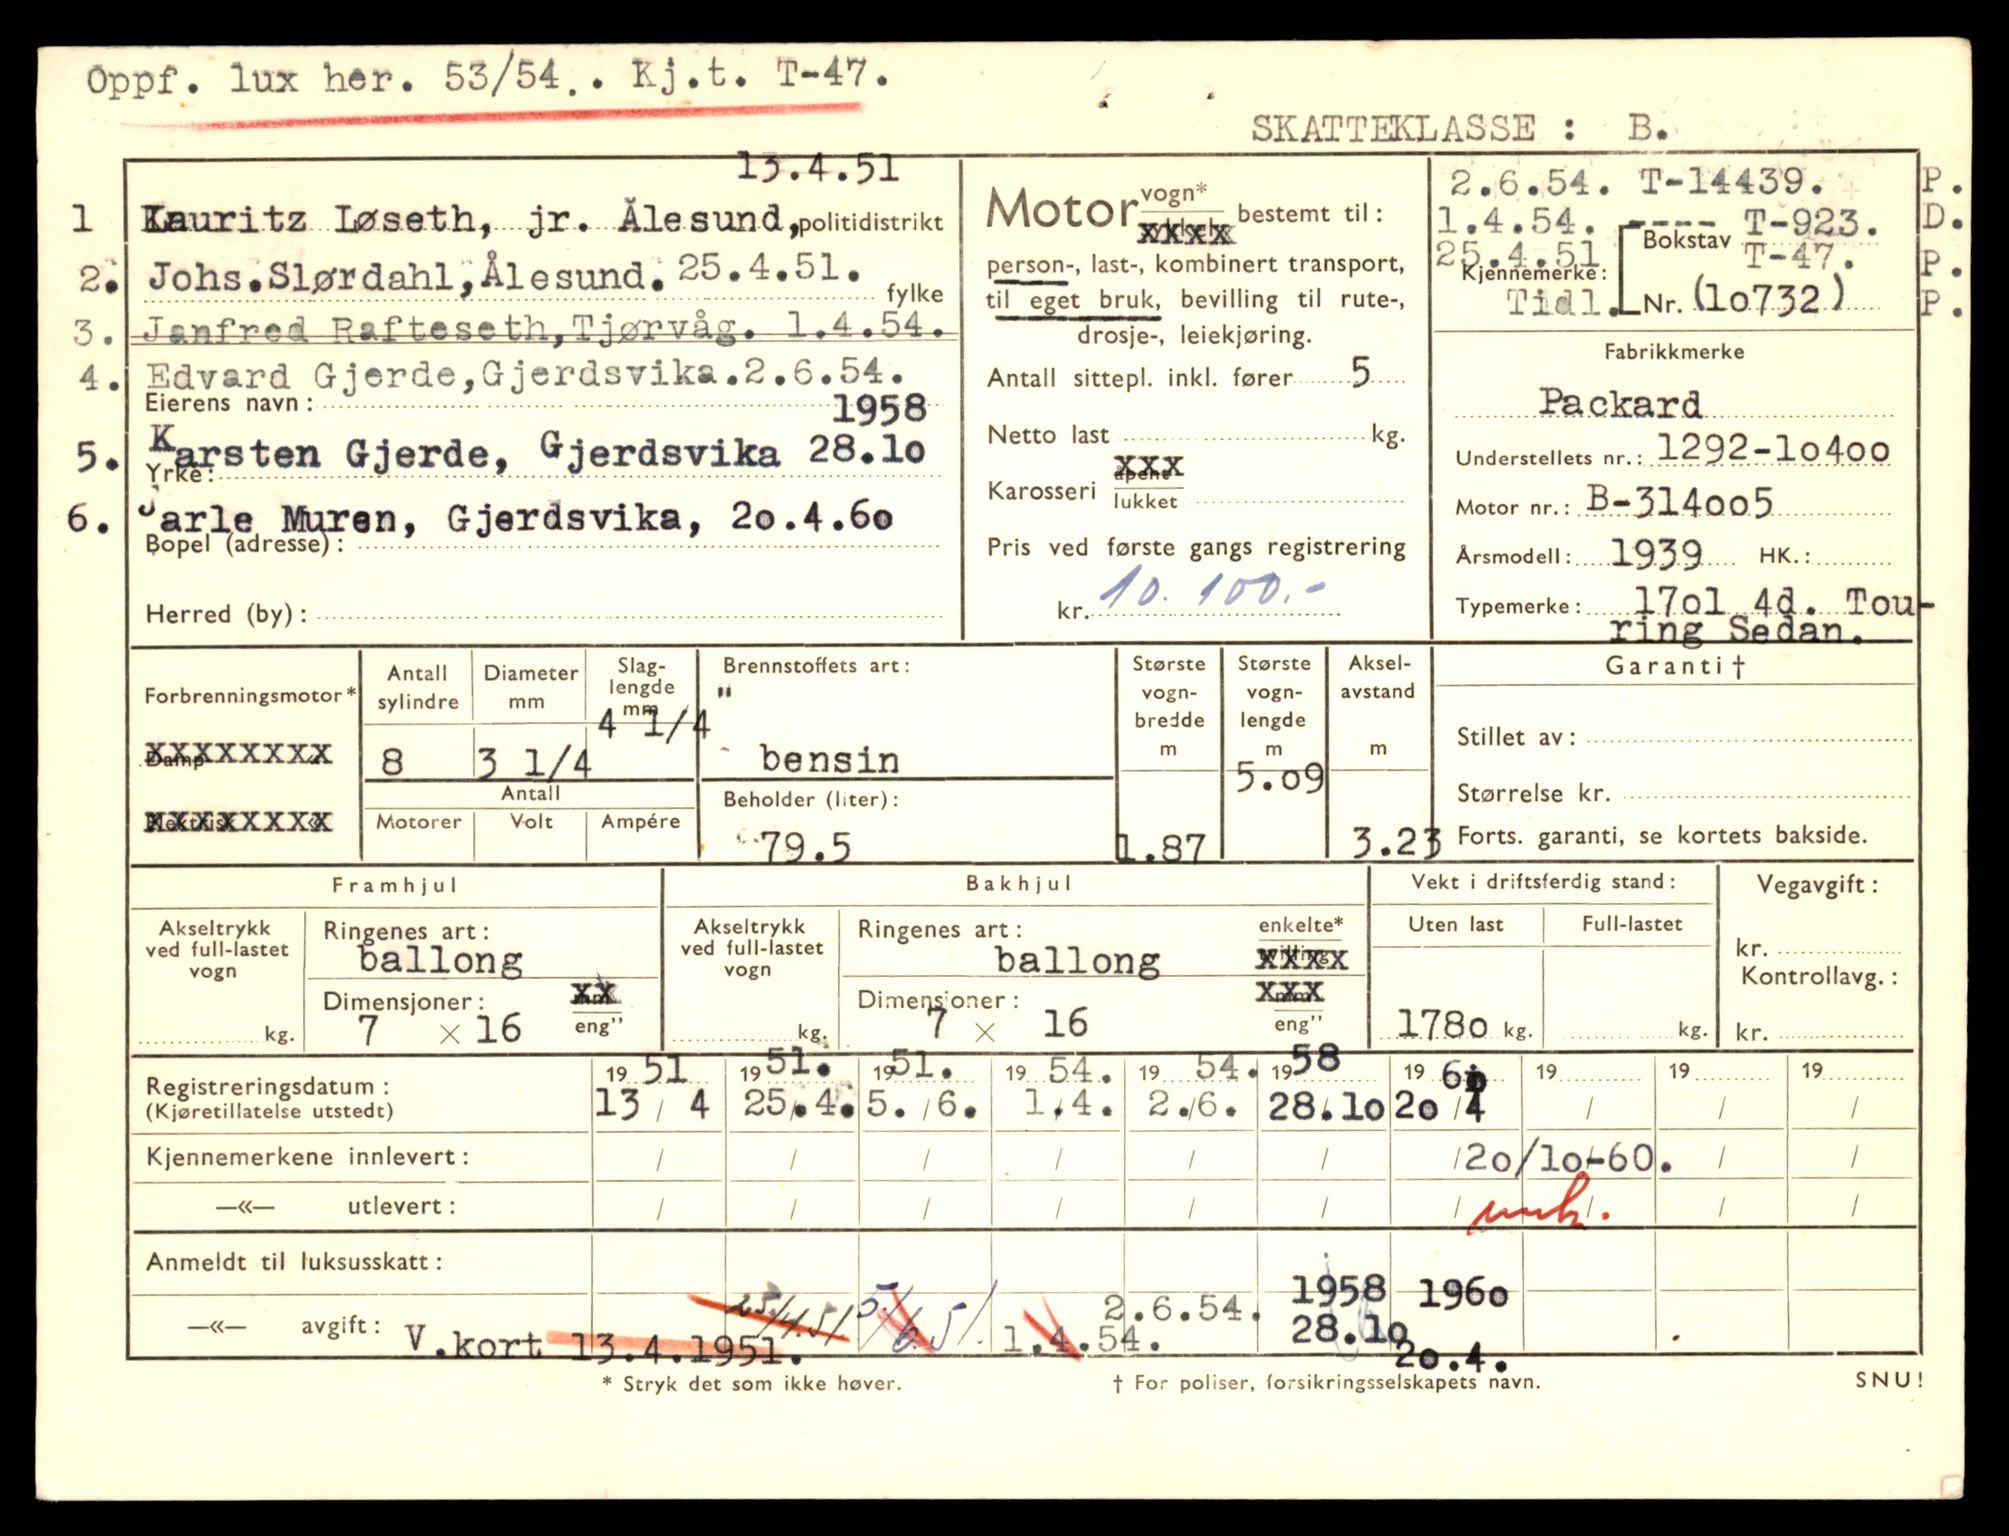 Oppf. lux her. 53/54.. Kj.t. T-47.
SKATTEKLASSE : B.
13.4.51
1 Lauritz Løseth, jr. Ålesund, politidistrikt
2. Johs.Slørdahl,Ålesund. 25.4.51.
fylke
3. Janfred Rafteseth,Tjørvåg. 1.4.54.
4. Edvard Gjerde,Gjerdsvika.2.6.54.
Eierens navn:
1958
5. Karsten Gjerde, Gjerdsvika 28.1o
Yrke:
6. Jarle Muren, Gjerdsvika, 2o.4.6o
Bopel (adresse):
Herred (by):
Motor vogn* xxxx bestemt til:
person-, last-, kombinert transport,
til eget bruk, bevilling til rute-,
drosje-, leiekjøring.
Antall sittepl. inkl. fører 5
Netto last kg.
xxx
Karosseri åpent
lukket
Pris ved første gangs registrering
kr. 10.100.-
2.6.54. T-14439. P.
1.4.54. ---- T-923. D.
25.4.51 Bokstav T-47. P.
Kjennemerke:
Tidl. Nr. (1o732) P.
Fabrikkmerke
Packard
Understellets nr.: 1292-1o4oo
Motor nr.: B-314oo5
Årsmodell: 1939 HK.:
Typemerke: 17o1 4d. Tou-
ring Sedan.
Forbrenningsmotor*
Damp xxxxxxxx «
Elektrisk xxxxxxxx «
Antall sylindre
8
Diameter mm
3 1/4
Slag-
lengde
mm
4 1/4
Antall
Motorer Volt Ampére
Brennstoffets art:
"
bensin
Beholder (liter):
79.5
Største
vogn-
bredde
m
1.87
Største
vogn-
lengde
m
5.o9
Aksel-
avstand
m
3.23
Garanti†
Stillet av:
Størrelse kr.
Forts. garanti, se kortets bakside.
Framhjul
Akseltrykk
ved full-lastet
vogn
kg.
Ringenes art:
ballong
Dimensjoner: xx mm
7 × 16 eng”
Bakhjul
Akseltrykk
ved full-lastet
vogn
kg.
Ringenes art: enkelte*
ballong xxxx tvilling
Dimensjoner: xxx mm
7 × 16 eng”
Vekt i driftsferdig stand:
Uten last Full-lastet
178o kg. kg.
Vegavgift:
kr.
Kontrollavg.:
kr.
Registreringsdatum: 19 51 19 51. 19 51. 19 54. 19 54. 19 58 19 6o 19 19 19
(Kjøretillatelse utstedt) 13 / 4 25/.4. 5. /6. 1./4. 2./6. 28./1o 2o / 4 / / /
Kjennemerkene innlevert: / / / / / / / 2o/1o-60. / /
—«— utlevert: / / / / / / / / / /
Anmeldt til luksusskatt:
1958 196o
—«— avgift: V.kort 13.4.1951. 25/4.51 5/6.51. 1.4.54. 2.6.54. 28.1o 2o.4.
* Stryk det som ikke høver.
† For poliser, forsikringsselskapets navn.
SNU!